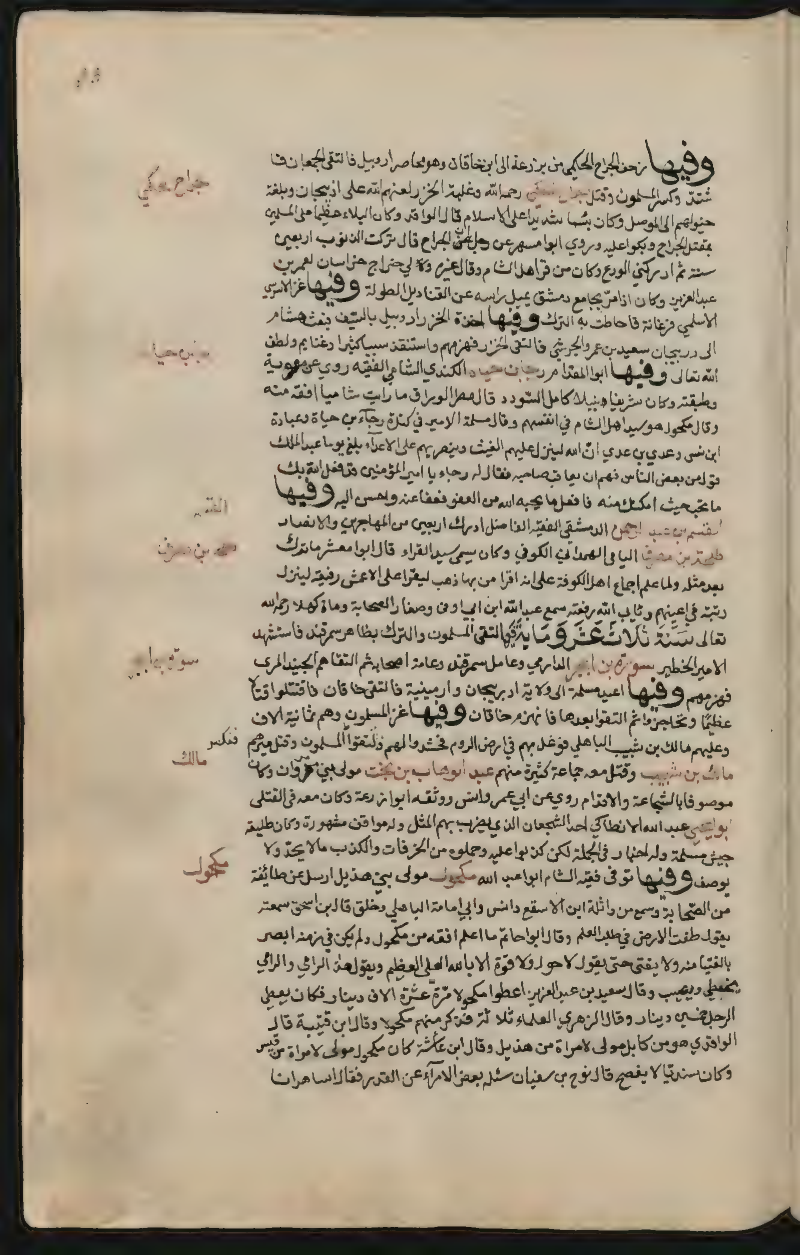 وفيها زحف الجراح الحكمي من برزعة الى ابن خاقان وهو محاصر اردوبيل فالتقى الجمعان فا
شتد وكسر المسلمون وقتل جراح الحكمي رحمه الله وغلبة الخزر لعنهم الله على اذربيجان وبلغة
خيولهم الى الموصل وكان باسا شديدا على الاسلام قال الواقدي وكان البلاء عظيما على المسلمين
بمقتل الجراح وبكوا عليه وروي ابوا مسهر عن رجل ان الجراح قال تركت الذنوب اربعين
سنة ثم ادركني الورع وكان من قرا اهل الشام وقال غيره ولا لي خراج خراسان لعمر بن
عبد العزيز وكان اذا مر بجامع دمشق يميل راسه عن القناديل لطوله وفيها غزا
الاسلمي فرغانة فاحاطت به الترك وفيها اخذة الخزر اردوبيل بالسيف فبعث هشام
الى دربيجان سعيد بن عمرو الجرشي فالتقى الخزر فهزمهم واستنقذ سبيا كثيرا وغنايم ولطف
الله تعالى وفيها ابوا المقدام رجا بن حياه الكندي الشامي الفقيه روي عن معوية
وطبقته وكان شريفا نبيلا كامل السودد قال مطر الوراق ما رايت شاميا افقه منه
وقال مكحول هو سيد اهل الشام في انفسهم وقال مسلمة الامير في كندة رجآء بن حياة وعبادة
ابن نسى وعدي بن عدي ان الله لينزل عليهم الغيث وينصر بهم على الاعدآء بلغ يوما عبد الملك
قول من بعض الناس فهم ان يعاقب صاحبه فقال له رجاء يا امير المؤمنين قد فعل الله بك
ما تحب حيث امكنك منه فافعل ما يحبه الله من العفو فعفا عنه واحسن اليه وفيها
القسم بن عبد الرحمن الدمشقي الفقيه الفاضل ادرك اربعين من المهاجرين والانصار
طلحة بن مصرف اليامي الهمداني الكوفي وكان يسمى سيد القراء قال ابوا معشر ما ترك
بعده مثله ولما علم اجماع اهل الكوفة على انه اقرا من بها ذهب ليقرا على الاعمش رفيقه لينزل
رتبته في اعينهم ويابى الله رفعته سمع عبد الله ابن ابي اوفى وصغار الصحابة ومات كهلا رحمه الله
تعالى سنة ثلاث عشر وماية فيها التقى المسلمون والترك بظاهر سمرقند فاستشهد
الامير الخطير سورة بن ابجر الدارمي وعامل سمرقند وعامة اصحابه ثم التقاهم الجنيد المري
فهزمهم وفيها اعيد مسلمة الى ولاية اذربيجان وارمينية فالتقى خاقان فاقتتلوا قتالا
عظيما وتحاجزوا ثم التقوا بعدها فانهزم خاقان وفيها غزا المسلمون وهم ثمانية الاف
وعليهم مالك بن شبيب الباهلي فوغل بهم في ارض الروم فحشدوا لهم والتقوا المسلمون وقتل ميرهم
مالك بن شبيب وقتل معه جماعة كثيرة منهم عبد الوهاب بن بخت مولى بني مروان وكان
موصوفا بالشجاعة والاقدام روي عن ابي عمر وانس ووثقه ابوا زرعة وكان معه في القتلى
ابو يحيى عبد الله الانطاكي احد الشجعان الذي يضرب بهم المثل وله مواقف مشهورة وكان طليعة
جيش مسلمة وله اخبار في الجملة لكن كذبوا عليه وحملوه من الخرفات والكذب مالا يحد ولا
يوصف وفيها توفى فقيه الشام ابوا عبد الله مكحول مولى بني هذيل ارسل عن طائفة
من الصحابة وسمع من واثلة ابن الاسقع وانس وابي امامة الباهلي وخلق قال ابن اسحق سمعته
يقول طفت الارض في طلب العلم وقال ابوا حاتم ما اعلم افقه من مكحول ولم يكن في زمنه ابصر
بالفتيا منه ولا يفتى حتى يقول لا حول ولا قوة الا بالله العلى العظيم ويقول هذا الراي والراي
يخطي ويصيب وقال سعيد بن عبد العزيز اعطوا مكحولا مرة عشرة الاف دينار فكان يعطي
الرجل خمسين دينار وقال الزهري العلماء ثلاثة فذكر منهم مكحولا وقال ابن قتيبة قال
الواقدي هو من كابل مولى لامراة من هذيل وقال ابن عائشة كان مكحول مولى لامراة من قيس
وكان سنديا لا يفصح قال نوح بن سفيان سئله بعض الامرآء عن القدر فقال اساهرانا
جراح حكمي
رجا بن حياه
القسم
طلحه بن مصرف
سورة بن ابجر
مالك
مكحول